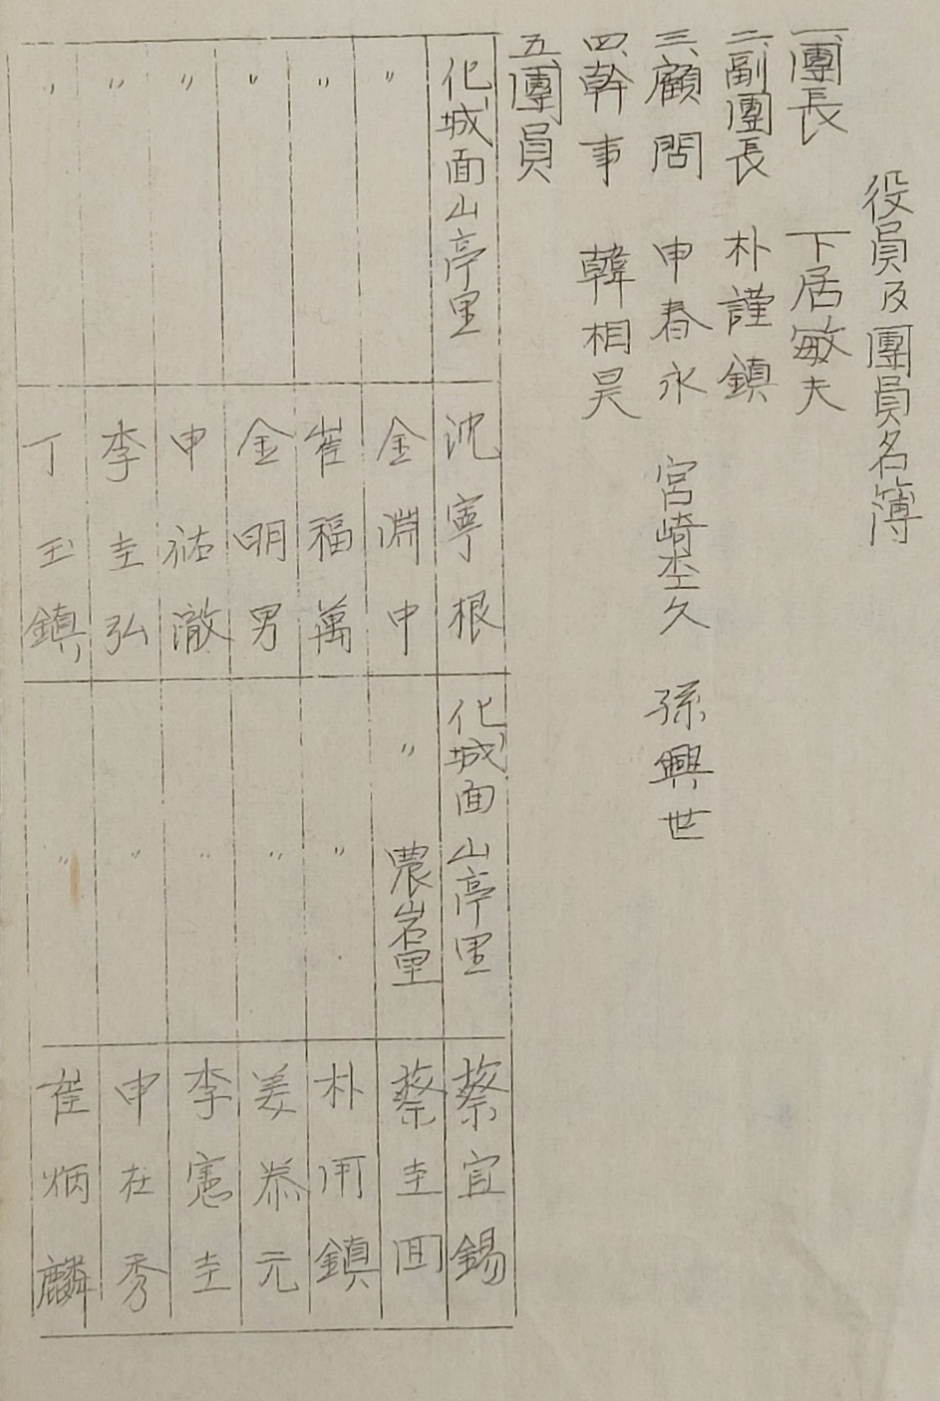 役員及團員名簿
一、團長 下居敏夫
二、副團長 朴謹鎮
三、顧問 申春永 宮崎 久 孫興世
四、幹事 韓相昊
五、團員
化城面山亭里 沈寧根
〃 金淵中
〃 崔福萬
〃 金明男
〃 申祐澈
〃 李圭弘
〃 丁玉鎮
化城面山亭里 蔡宜錫
〃 農岩里 蔡圭回
〃 〃 朴用鎮
〃 姜恭元
〃 李憲圭
〃 申在秀
〃 崔炳麟